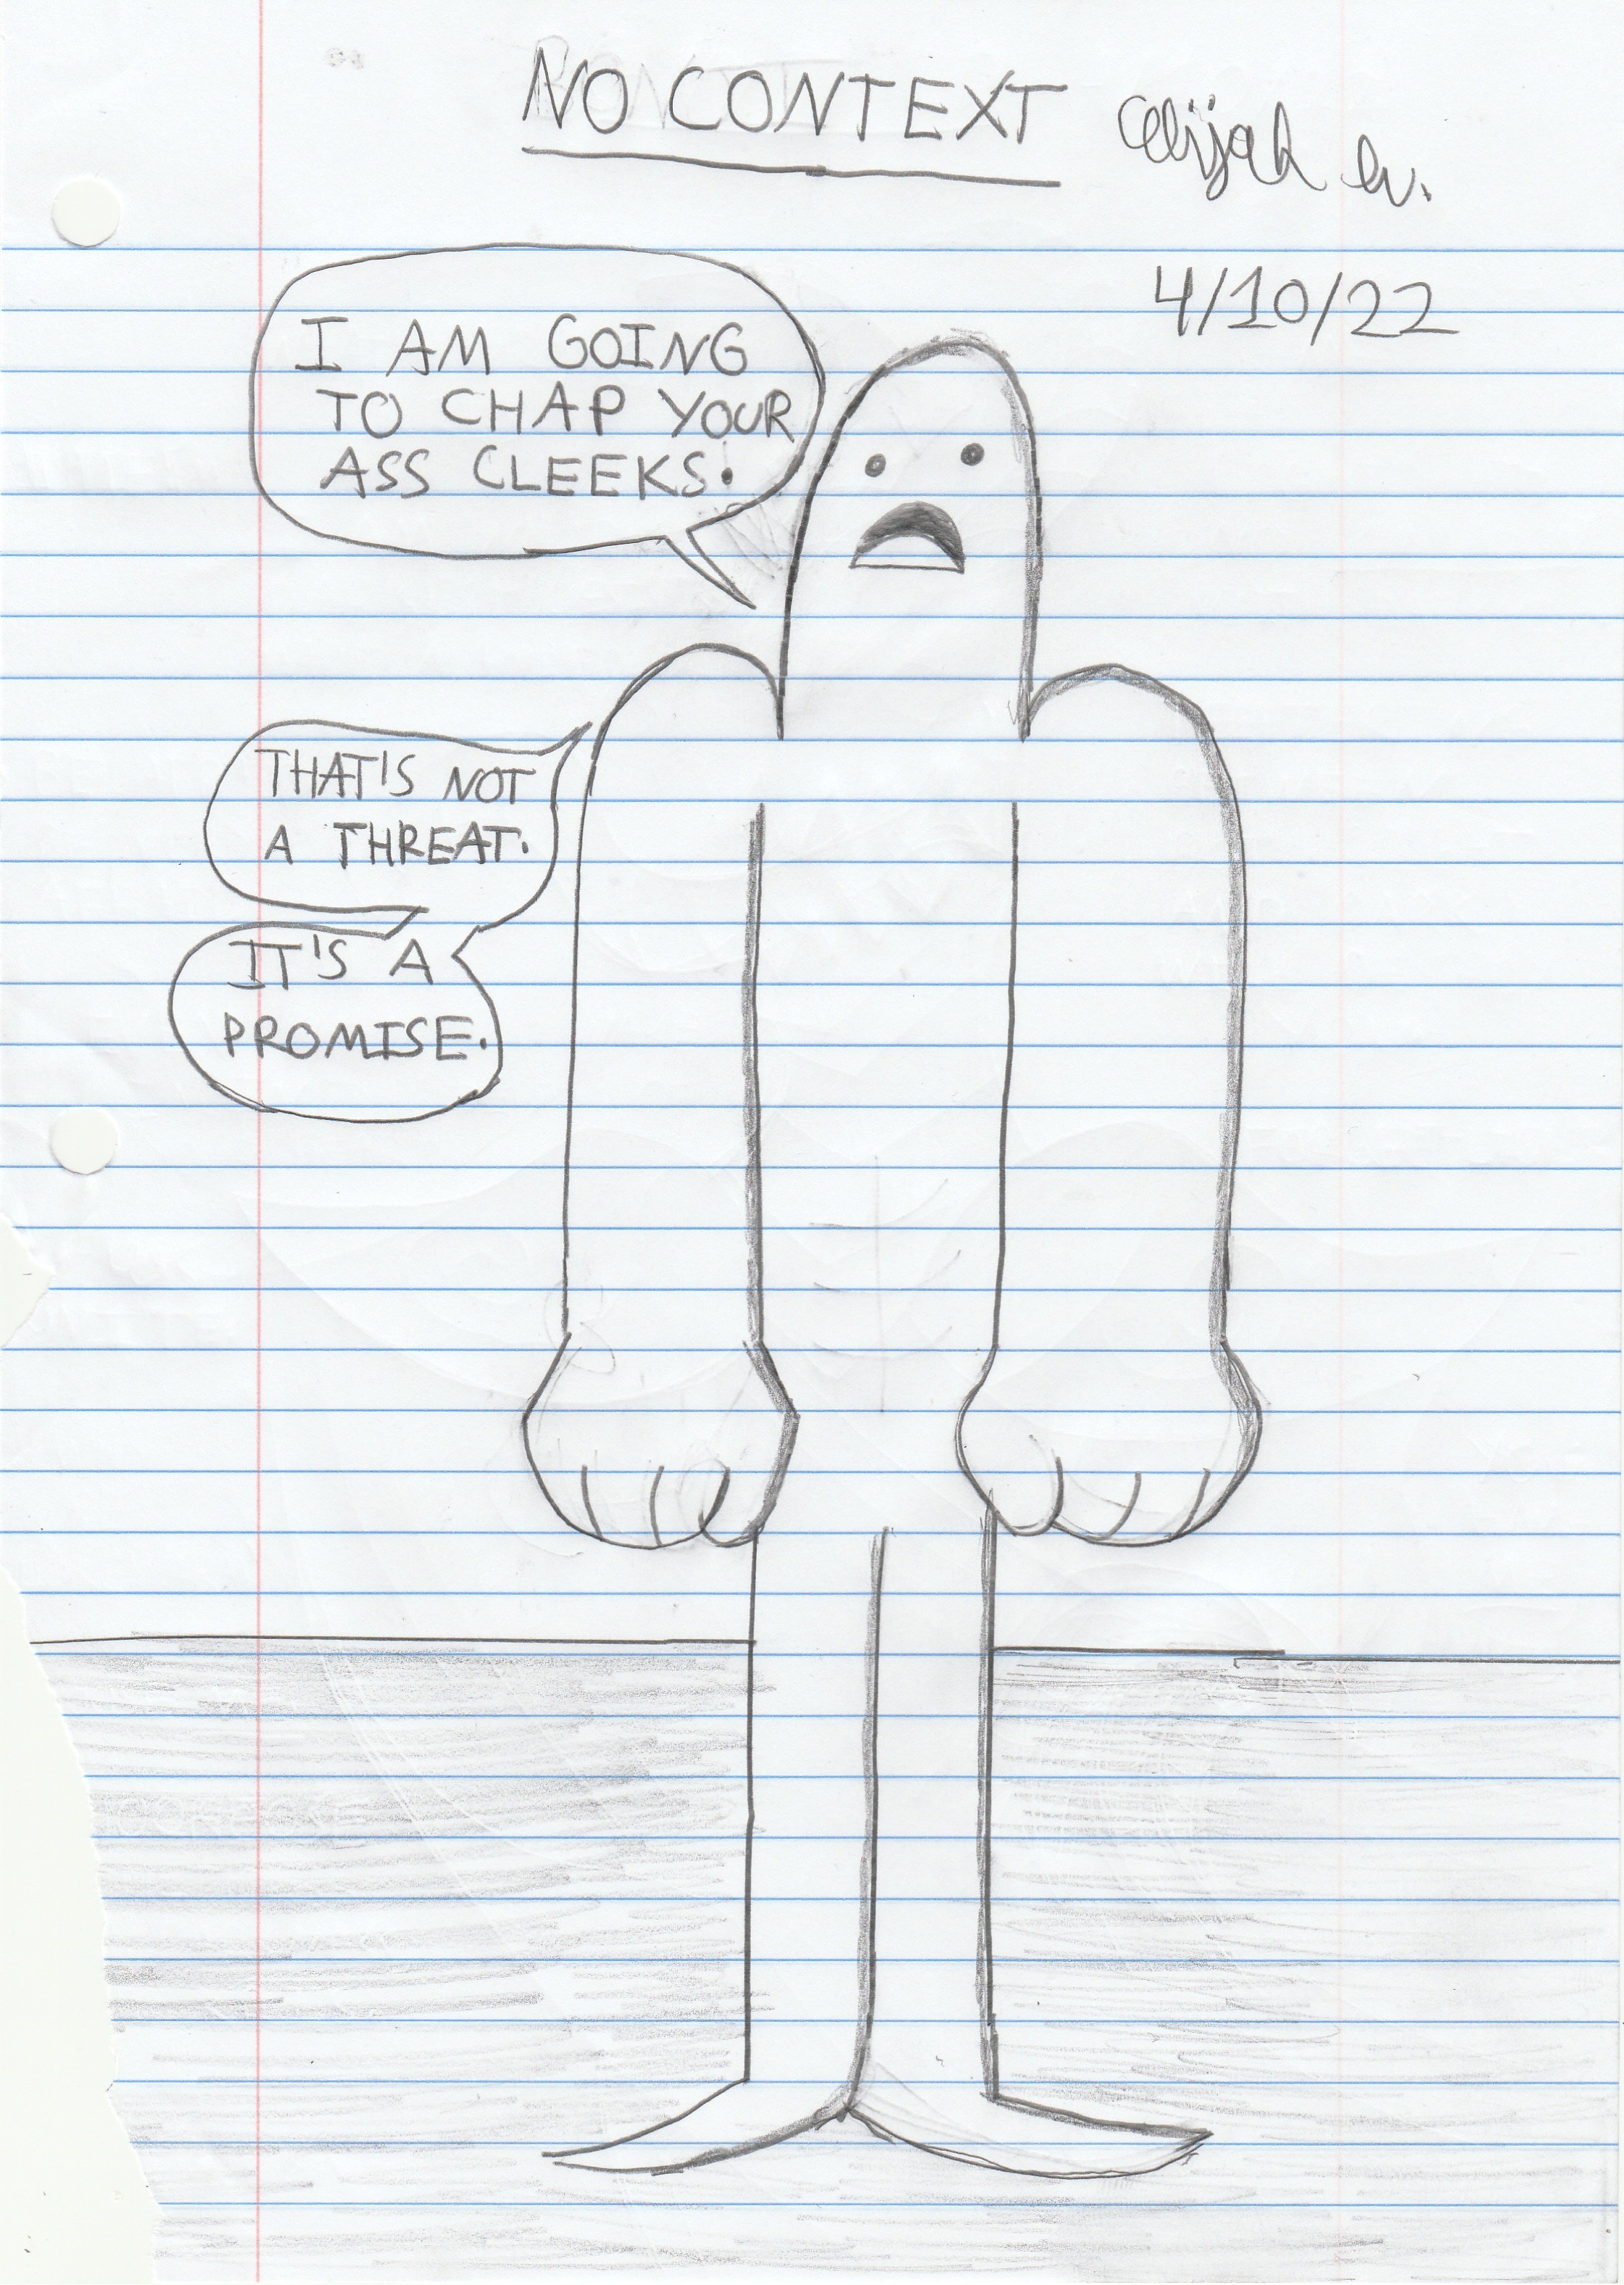 NO CONTEXT
Elijah W.
4/10/22
I AM GOING
TO CHAP YOUR
ASS CLEEKS.
THAT'S NOT
A THREAT.
IT'S A
PROMISE.